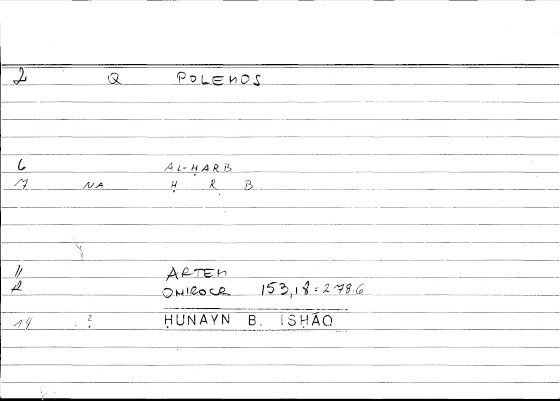 2 Q POLEMOS
6 AL-ḤARB
7 NA Ḥ R B
11 ARTEM
12 ONIROCR 153,18 = 278.6
14 ? ḤUNAYN B. ISḤĀQ